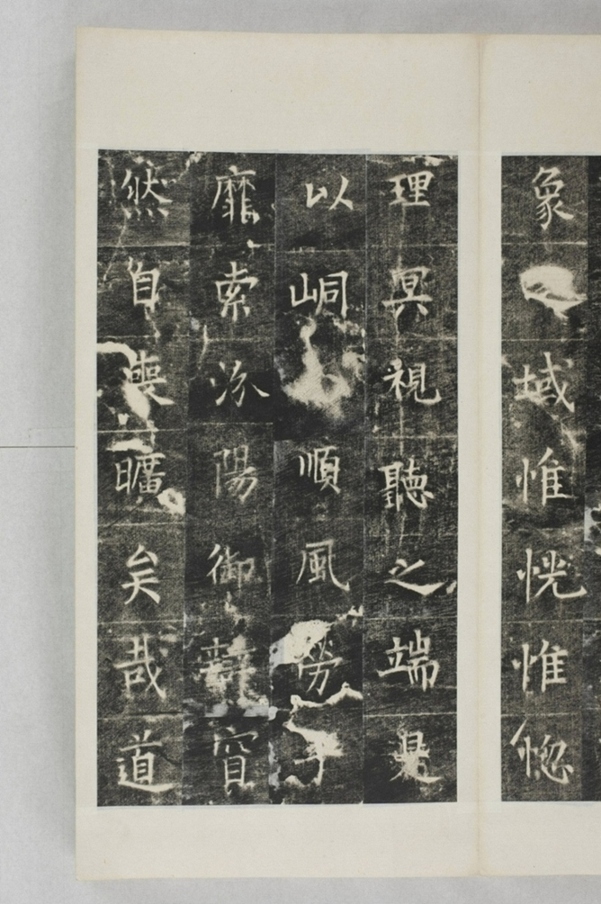 象域惟恍惟惚
理冥視聽之端是
以峒順風勞子
靡索汾陽御寶
然自喪曠矣哉道